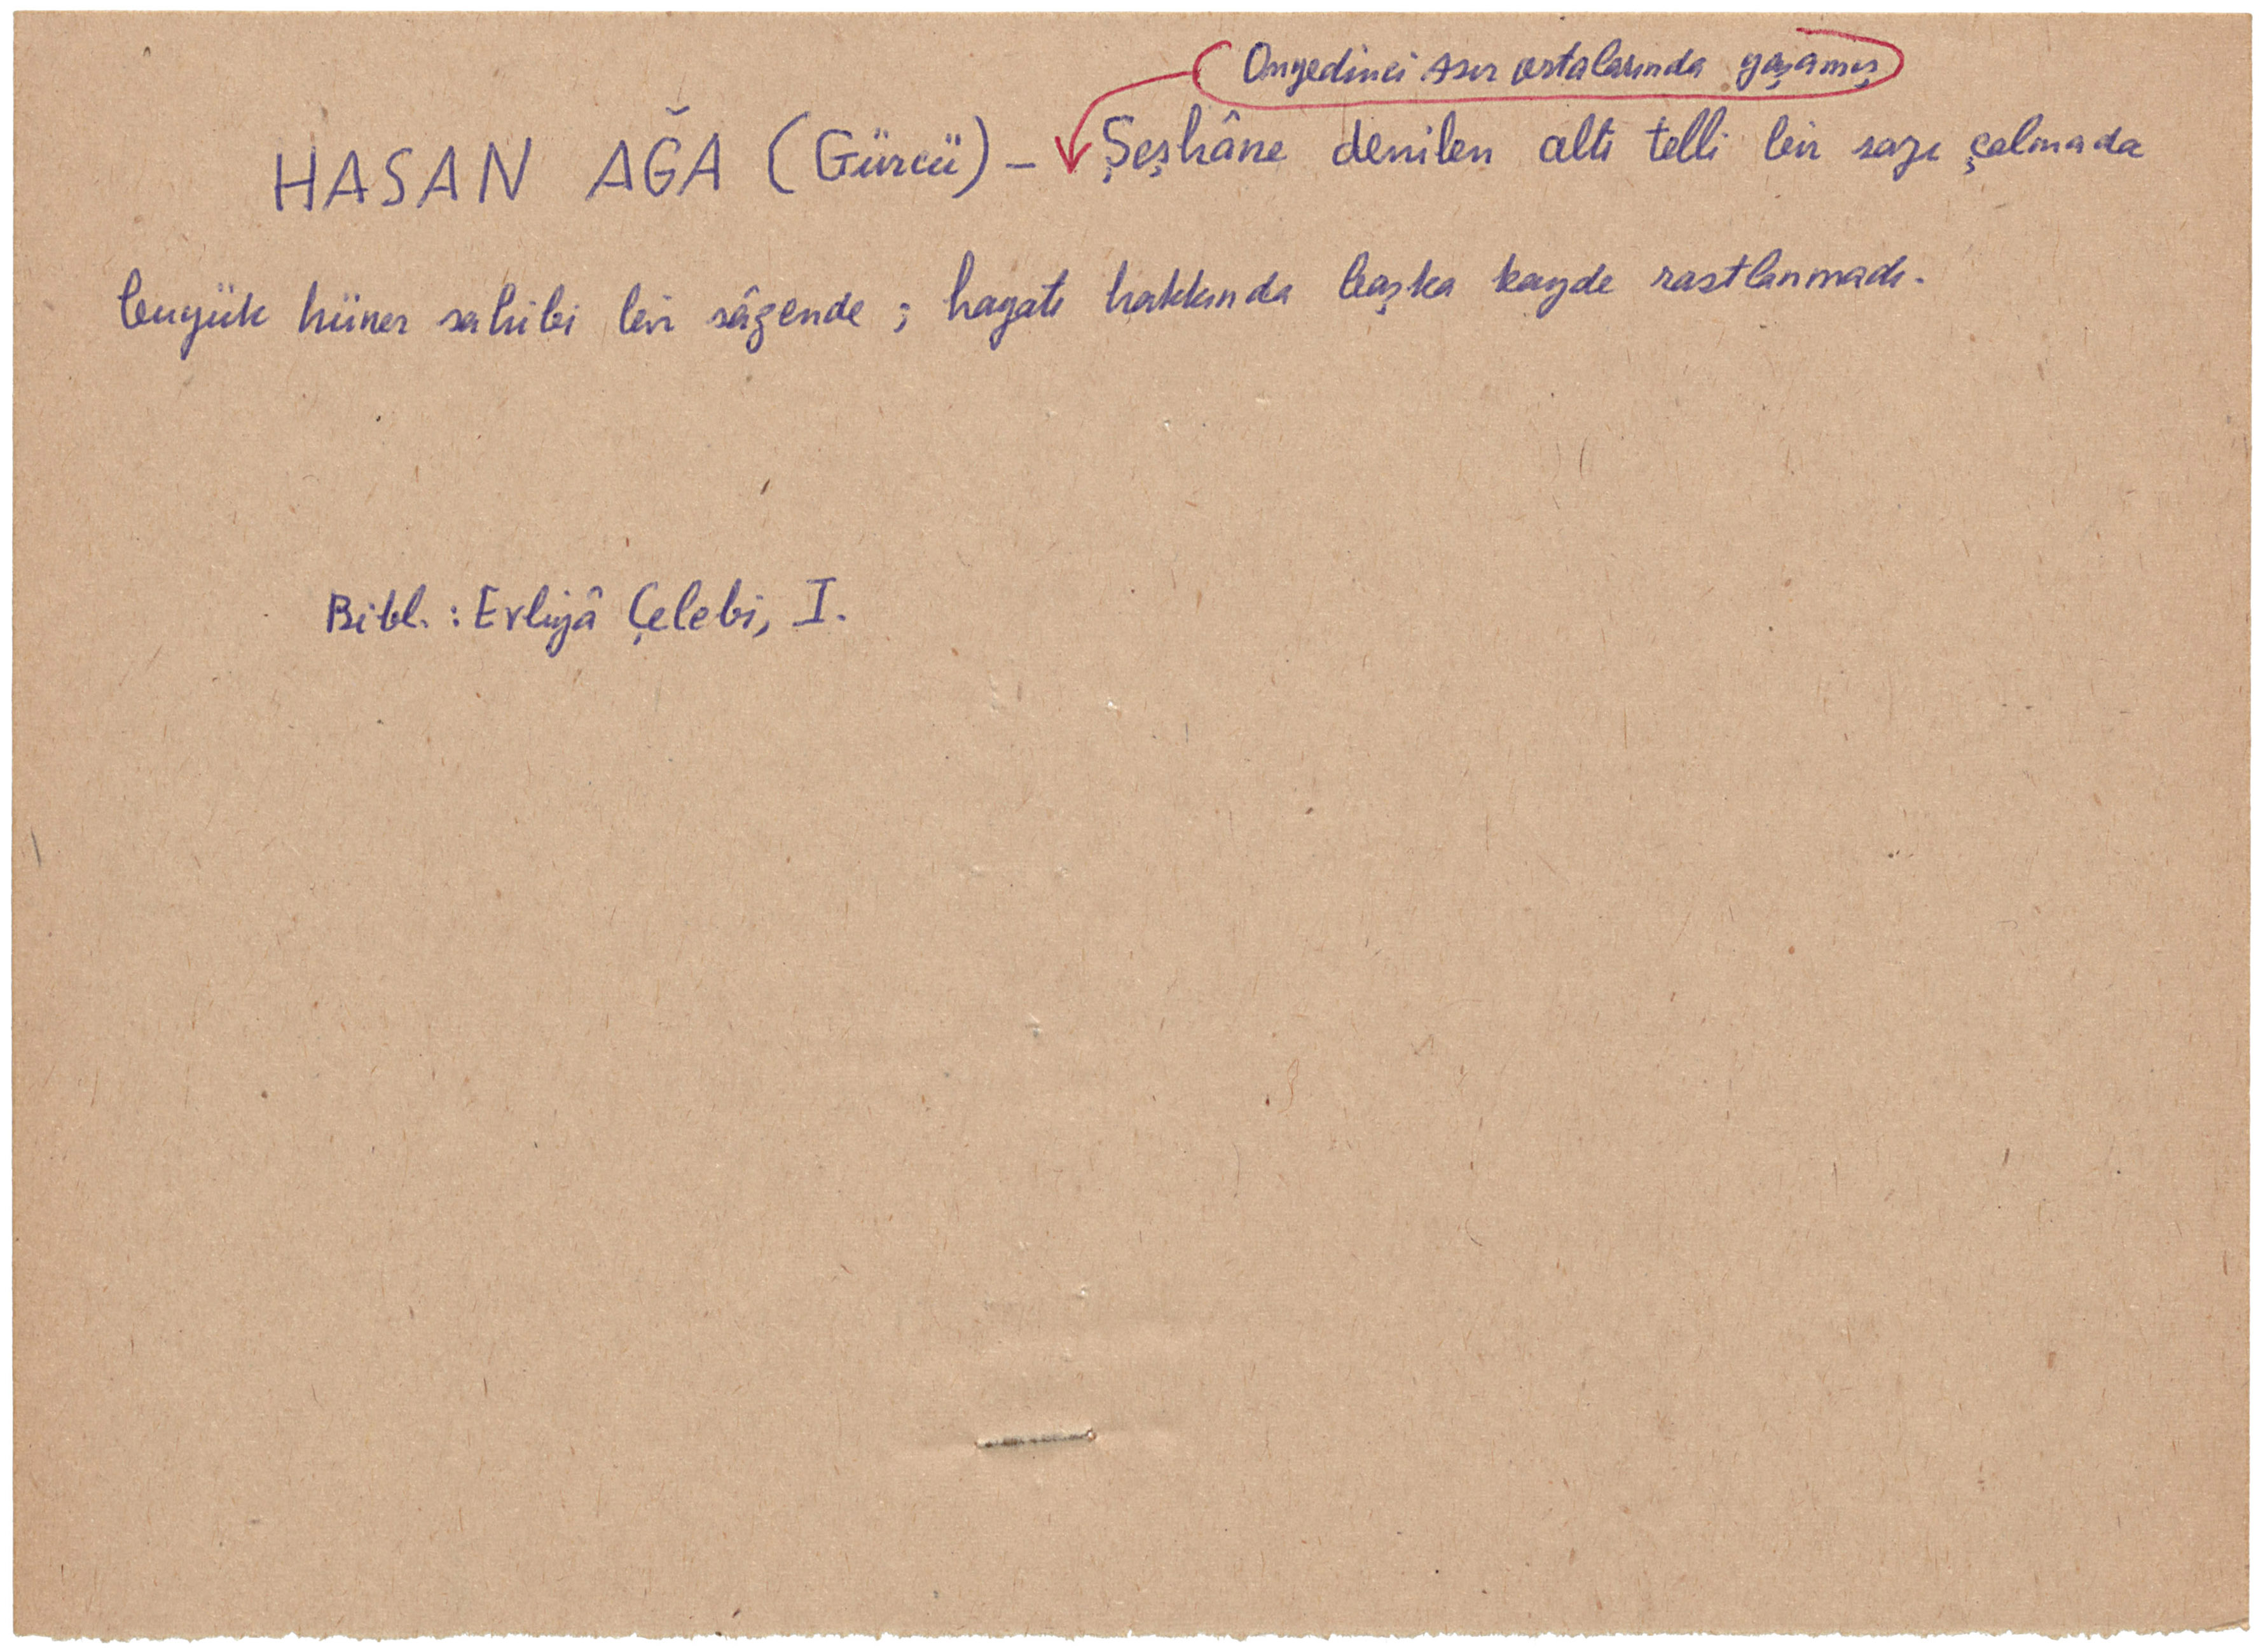 Onyedinci asır ortalarında yaşamış
HASAN AĞA (Gürcü) - Şeşhâne denilen altı telli bir sazı çalmada
buyük hüner sahibi bir sâzende ; hayatı hakkında başka kayde rastlanmadı.
Bibl. : Evliyâ Çelebi, I.